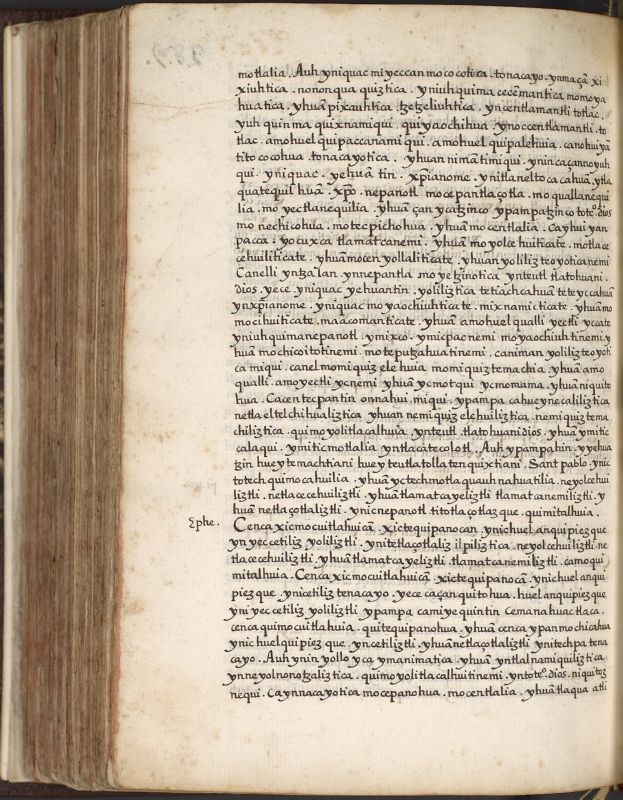 motlalia. Auh yniquac miyeccanmococotica. tonacayo. ynmaçā xi
xiuhtica. nononqua quiztica. yniuhquima cecēmantica momoya
huatica. yhuā pixauhtica tzetzeliuhtica. yncentlamantli totlac.
yuh quinma quixnamiqui. quiyaochihua. ynoccentlamantli. to
tlac. amohuel quipaccanamiqui. amohuel quipalehuia. canohuiyā
titococohua. tonacayotica. yhuan nimā timiqui. ynincaçannoyuh
qui. yniquac. yehuā tin. xp̄ianome. ynitlaneltocacahuā. ytla
quatequil huā. xp̄o. nepanotl mocepantlaçotla. moquallanequi
lia. moyectlanequilia. yhuā çan ycatzinco ypampatzinco totᵒ. dios
monechicohua. motecpichohua. yhuā mocentlalia. cayhuiyan
pacca. yocuxca tlamatcanemi. yhuā moyolcehuiticate. motlace
cehuiliticate. yhuāmocenyollaliticate. yhuan yoliliz teoyoticanemi
Canelli yntzalan ynnepantla moyetzinotica ynteutl tlatohuani.
dios. yece. yniquac yehuantin. yoliliztica tetiachcahuā teteyccahuā
ynxp̄ianome. yniquac moyaochiuhticate. mixnamicticate. yhuā mo
mocihuiticate. maacomanticate. yhuā amohuel qualli yectli yccate
yniuhquimanepanotl. ymixco. ymicpac nemi moyaochiuhtinemi. y
huā mochicoitotinemi. moteputzahuatinemi. caniman yoliliz teoyoti
ca miqui. canel momiquizelehuia momiquiztemachia. yhuā amo
qualli. amoyectli ycnemi yhuā ycmotqui. ycmomama. yhuā niquito
hua. Cacentecpantin onnahui. miqui. ypampa cahueynecaliliztica
netlaeltelchihualiztica yhuan nemiquizelehuiliztica. nemiquiztema
chiliztica. quimoyolitlacalhuia. ynteutl. tlatohuani dios. yhuā ymitic
calaqui. ymiticmotlalia. yntlacatecolotl. Auh ypampahin. yyehua
tzin huey temachtiani huey teutlatollatenquixtiani. Sant pablo. ynic
totech quimocahuilia. yhuā yctechmotlaquauhnahuatilia. neyolcehui
liztli. netlacecehuiliztli. yhuā tlamatcayeliztli tlamatcanemiliztli. y
huā netlaçotlaliztli. ynicnepanotl titotlaçotlazque. quimitalhuia.
Ephe. Cencaxicmocuitlahuicā. xictequipanocan. ynichuel anquipiezque
yn yeccetiliz yoliliztli. ynitetlaçotlaliz ilpiliztica. neyolcehuiliztli. ne
tlacecehuiliztli. yhuā tlamatcayeliztli. tlamatcanemiliztli. camoqui
mitalhuia. Cenca xicmocuitlahuicā. xictequipanocā. ynichuel anqui
piezque. yniceti­liz tenacayo. yece caçanquitohua. huel anquipiezque
yniyeccetiliz yoliliztli yypampa camiyequintin Cemanahuactlaca.
cenca quimocuitlahuia. quitequipanohua. yhuā cenca ypanmochicahua
ynichuelquipiezque. yncetiliztli. yhuā netlaçotlaliztli ynitechpa tena
cayo. Auh ynin yolloyca ymanimatica. yhuā yntlalnamiquiliztica
ynneyolnonotzaliztica. quimoyolitlacalhuitinemi. yntotᵒ. dios. niquitoz
nequi. Caynnacayotica mocepanohua. mocentlalia. yhuā tlaqua atli